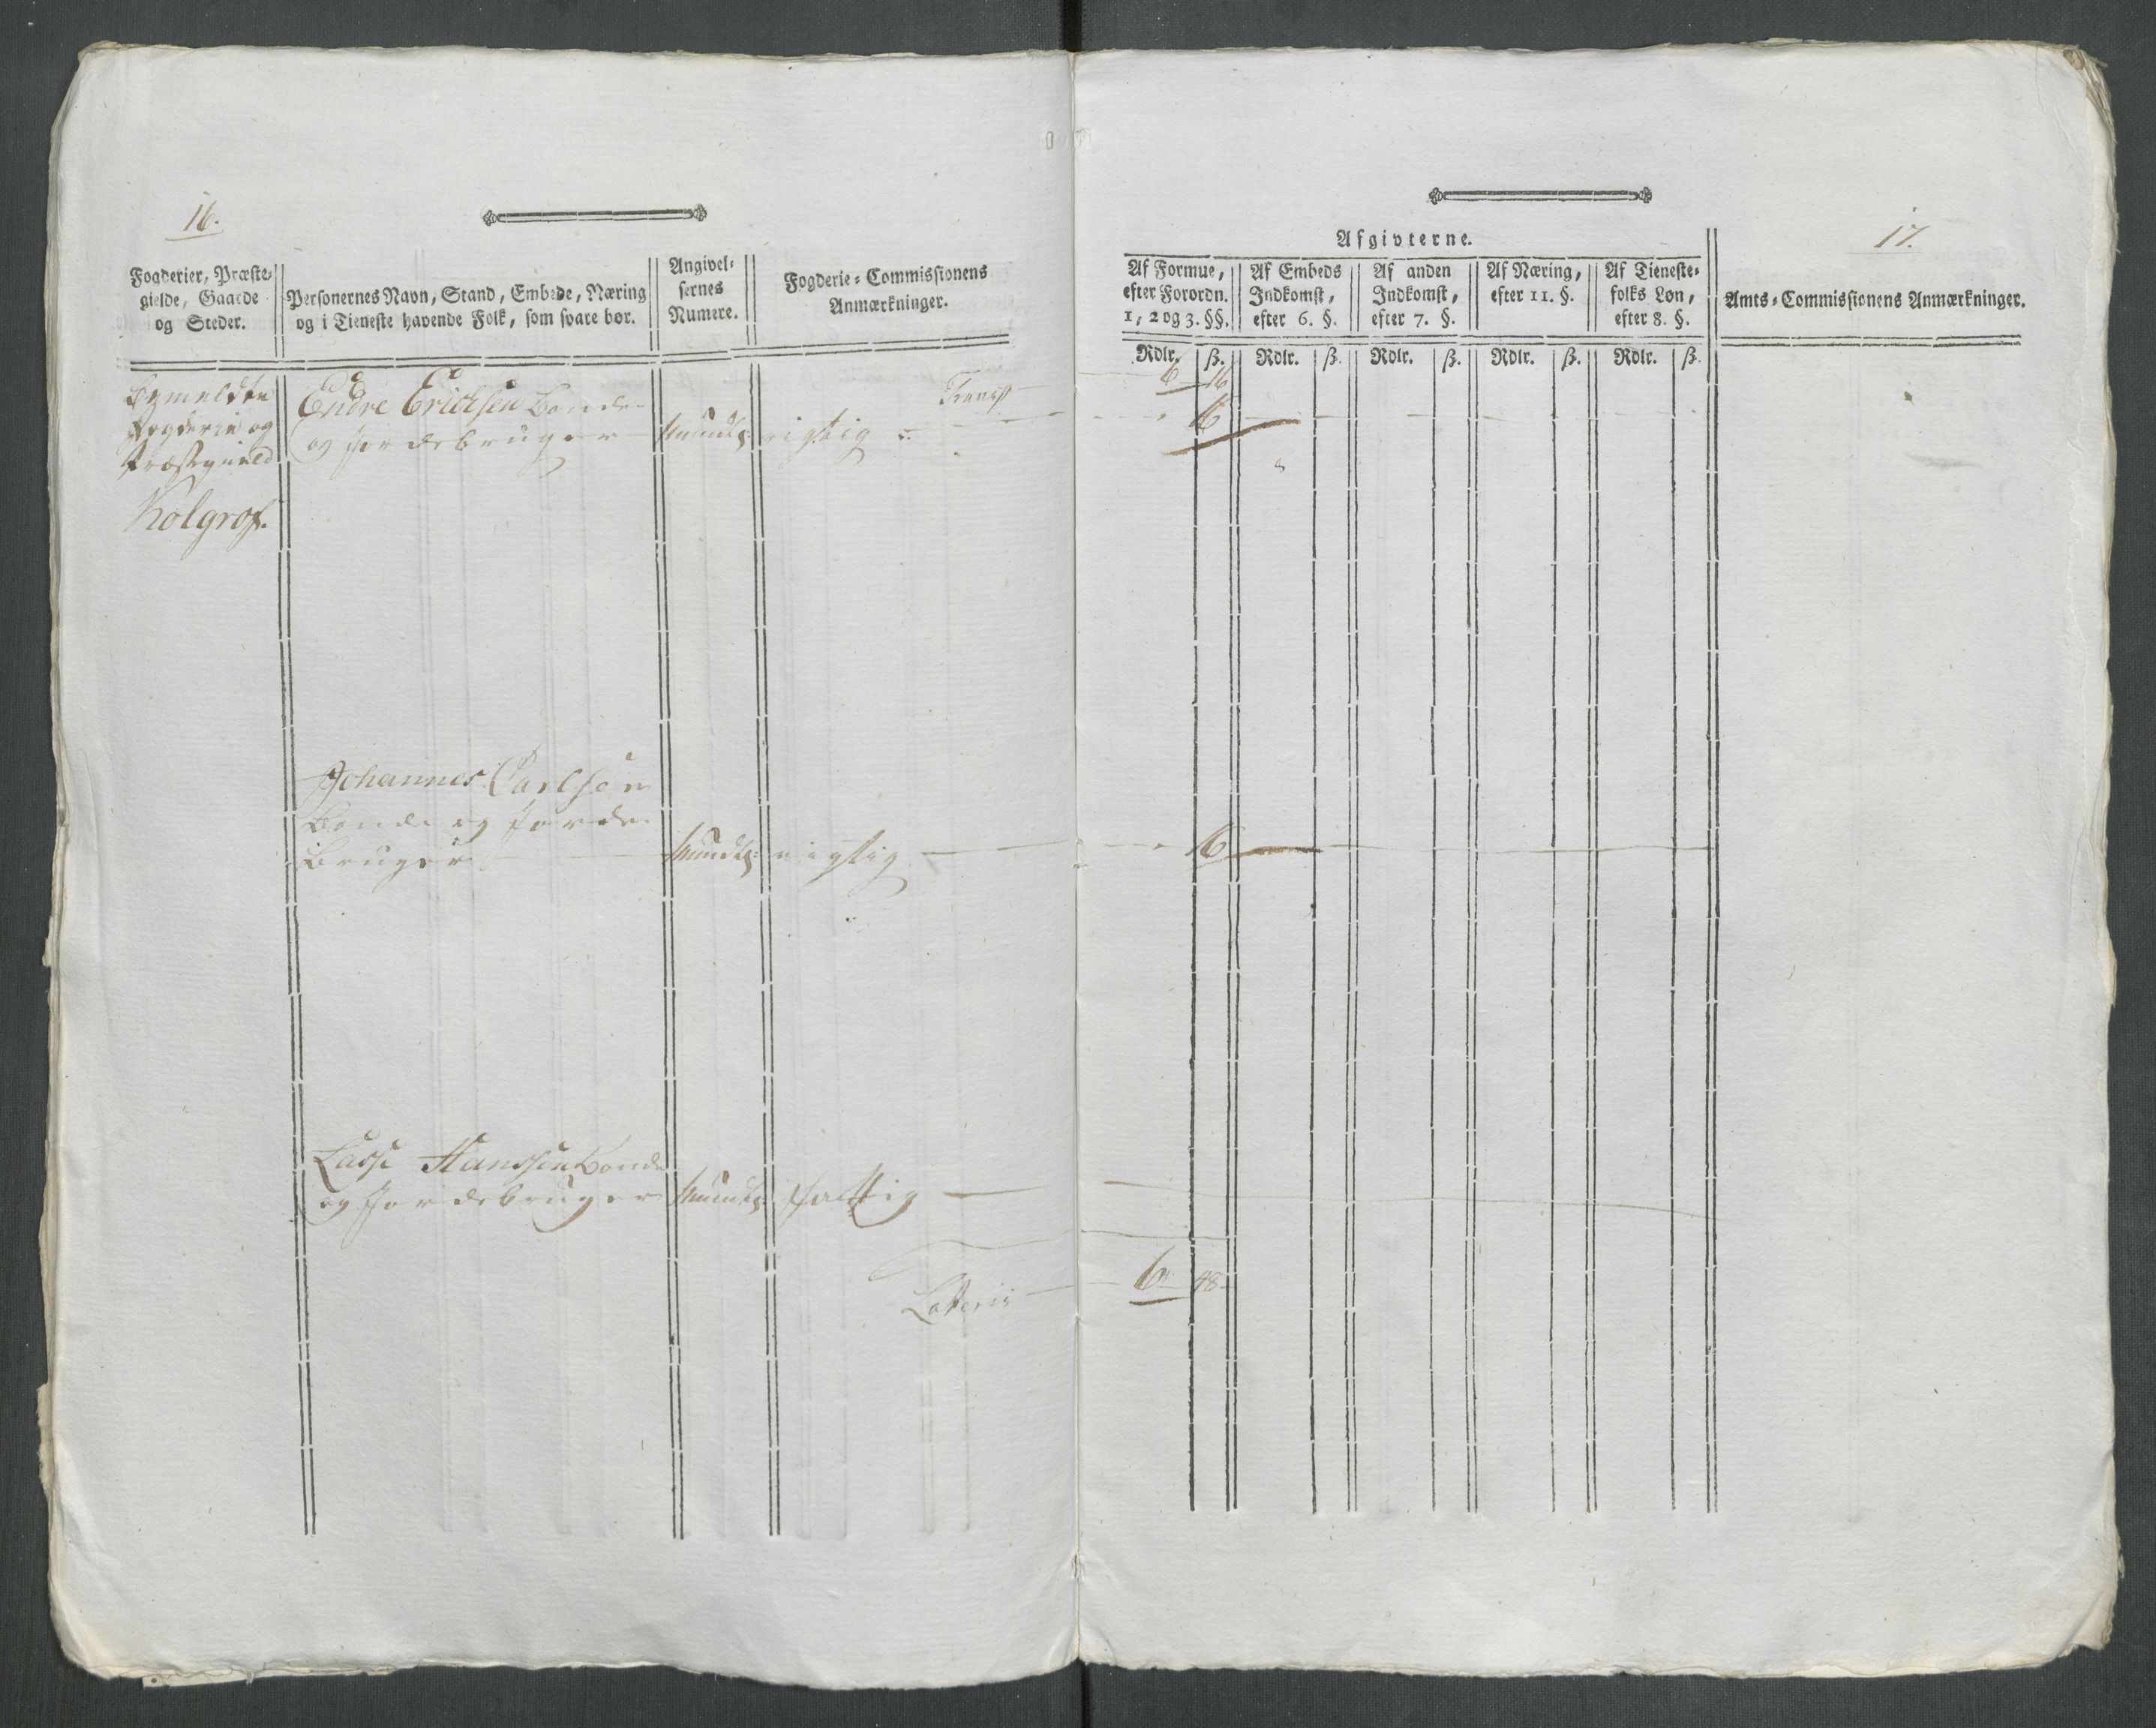 16.
Fogderier, Præste-
gielde, Gaarde
og Steder.
Personernes Navn, Stand, Embede, Næring
og i Tieneste havende Folk, som svare bør.
Angivel-
sernes
Numere.
Fogderie-Commissionens
Anmærkninger.
Bemeldte
Fogderie og
Præstegield
Kolgrof.
Transp
Endre Erichsen Bonde
og Jordebruger mundtl: rigtig
Johannes Carlsen
Bonde og Jorde
bruger mundtl: rigtig
Lasse Hanssen Bonde
og Jordebruger mundtl: fattig
Lateris
17.
Afgivterne.
Af Formue,
efter Forordn.
1, 2 og 3. §§.
Af Embeds
Indkomst,
efter 6. §.
Af anden
Indkomst,
efter 7. §.
Af Næring,
efter 11. §.
Af Tieneste-
folks Løn,
efter 8. §.
Amts-Commissionens Anmærkninger.
Rdlr. ß. Rdlr. ß. Rdlr. ß. Rdlr. ß. Rdlr. ß.
6 16
16
16
6 48